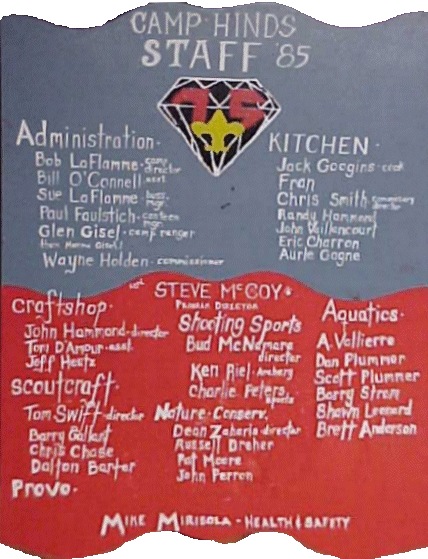 CAMP HINDS
STAFF '85
75
Administration.
Bob LaFlamme - camp director
Bill O'Connell - asst.
Sue LaFlamme - bus. mgr.
Paul Faulstich - canteen mgr.
Glen Gisel - camp ranger
Wayne Holden - commissioner
KITCHEN.
Jack Goggins - cook
Fran
Chris Smith - commissary director
Randy Hammond
John Vaillencourt
Eric Charron
Aurle Gagne
STEVE McCOY
PROGRAM DIRECTOR
Craftshop.
John Hammond - director
Tom D'Amour - asst.
Jeff Hestz
Scoutcraft.
Tom Swift - director
Barry Gallant
Chris Chase
Dalton Barter
Provo.
Shooting Sports
Bud McNamara
director
Ken Riel - Archery
Charlie Peters
Sports
Nature - Conserv.
Dean Zaharis - director
Russell Dreher
Pat Moore
John Perron
Aquatics.
A. Vallierre
Dan Plummer
Scott Plummer
Barry Strom
Shawn Leonard
Brett Anderson
MIKE MIRISOLA - HEALTH & SAFETY